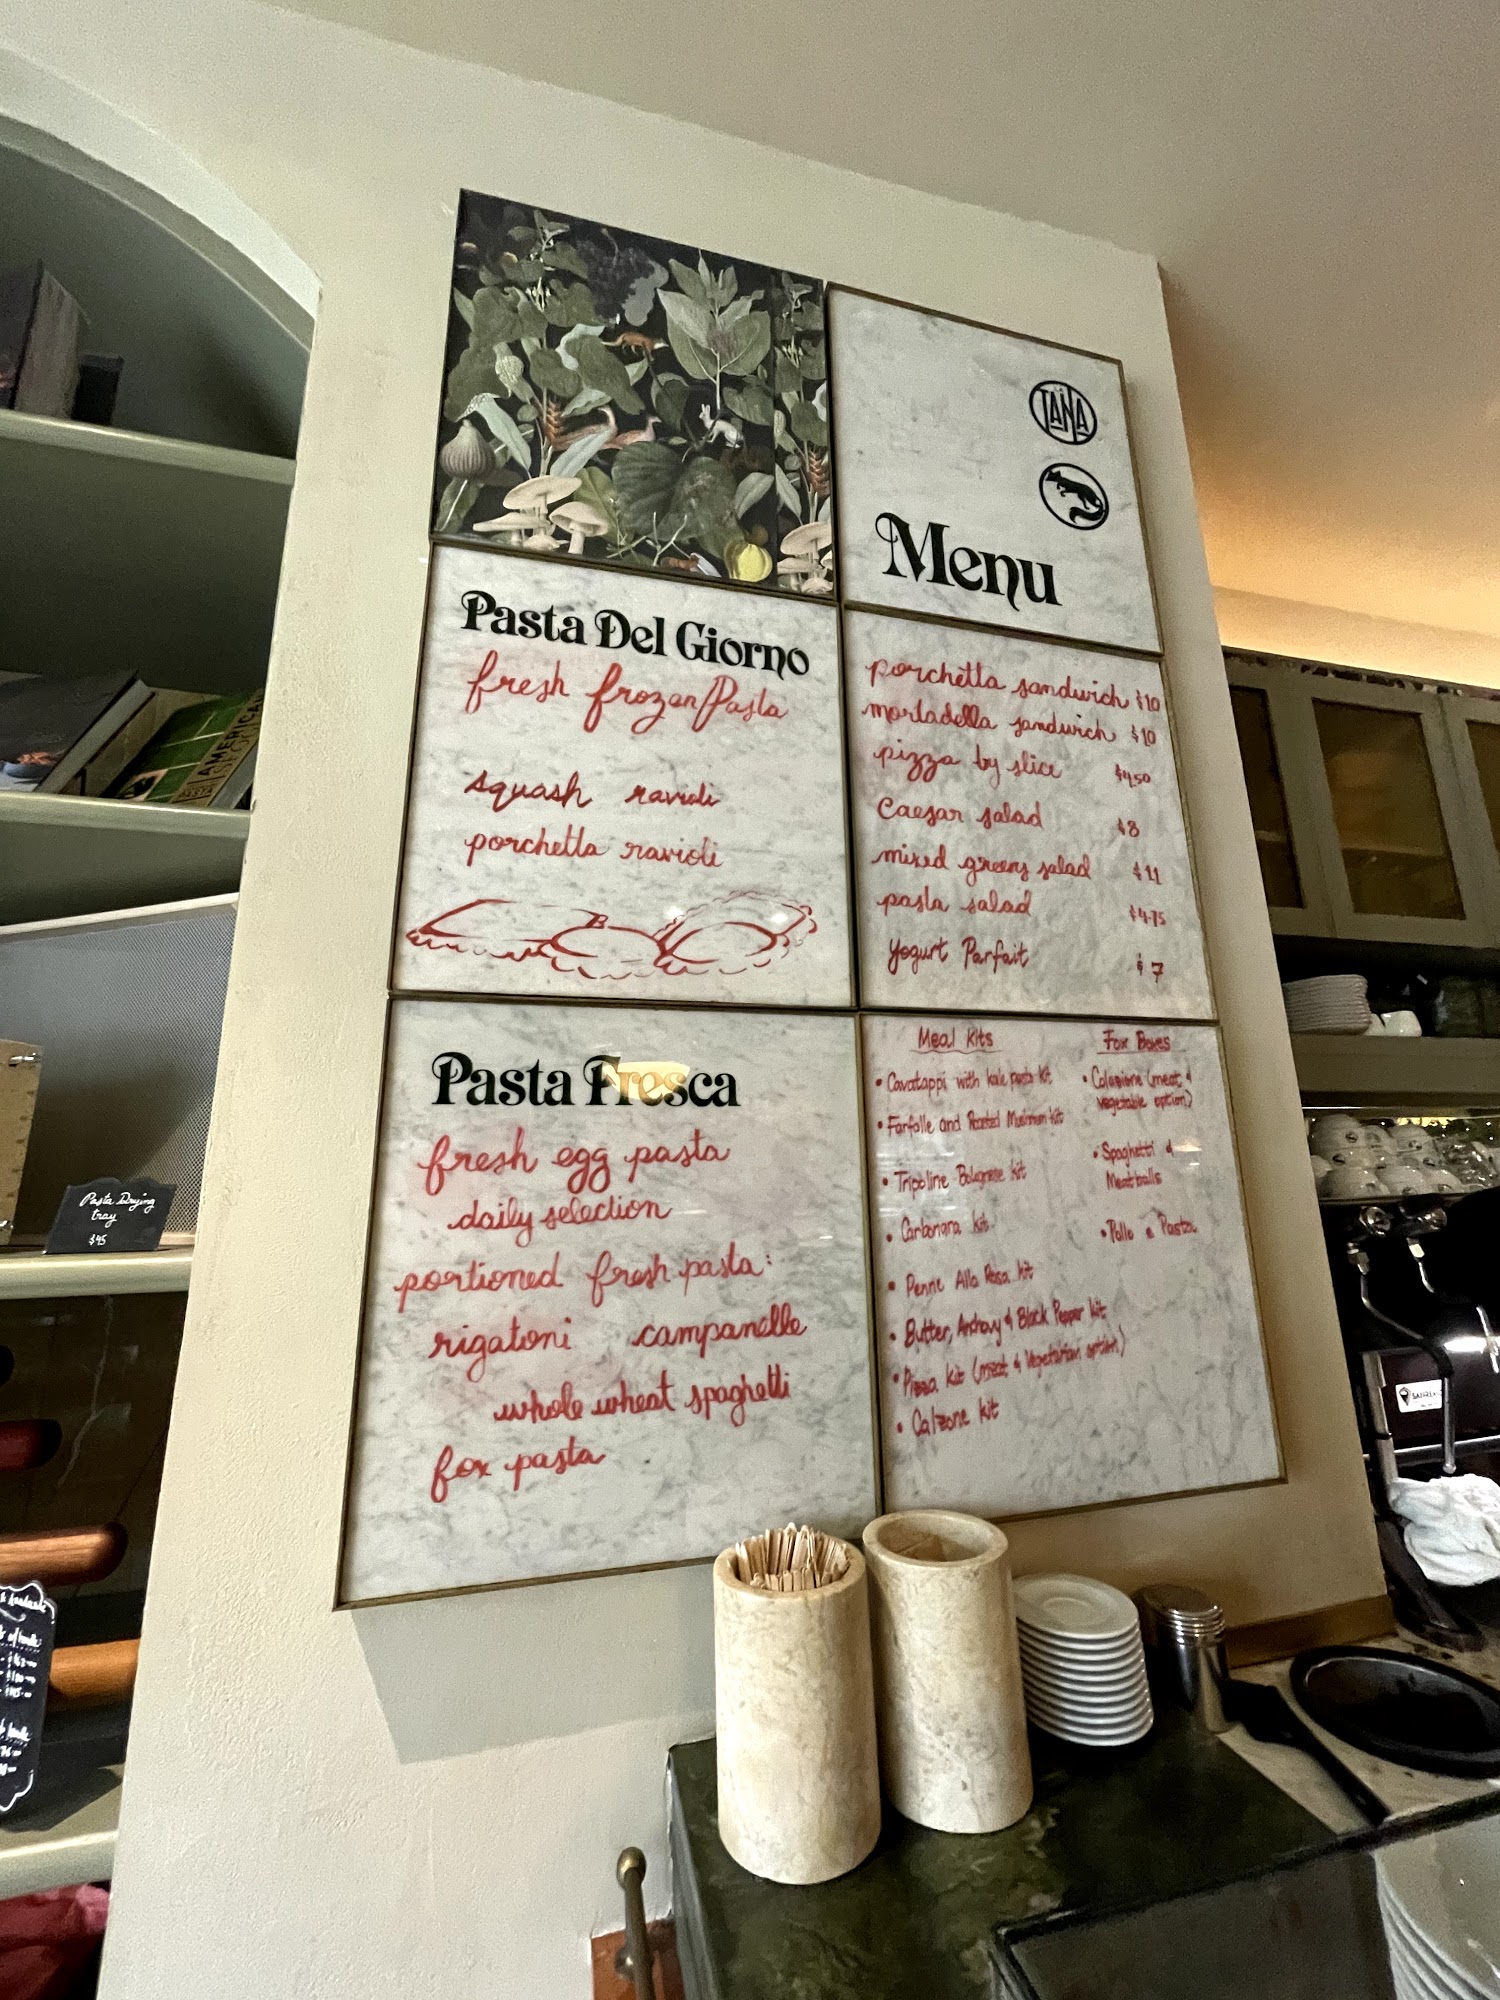 LA
TANA
Menu
Pasta Del Giorno
fresh frozen Pasta
squash ravioli
porchetta ravioli
porchetta sandwich $10
mortadella sandwich $10
pizza by slice $4.50
Caesar salad $8
mixed greens salad $11
pasta salad $4.75
Yogurt Parfait $7
Pasta Fresca
fresh egg pasta
daily selection
portioned fresh pasta:
rigatoni campanelle
whole wheat spaghetti
fox pasta
Meal Kits
• Cavatappi with kale pesto kit
• Farfalle and Roasted Mushroom kit
• Tripoline Bolognese kit
• Carbonara kit
• Penne Alla Rosa kit
• Butter, Anchovy & Black Pepper kit
• Pizza kit (meat & Vegetarian option)
• Calzone kit
Fox Boxes
• Colazione (meat &
vegetable option)
• Spaghetti &
Meatballs
• Pollo e Pasta
AMERICAN
Pasta Drying
tray
$45